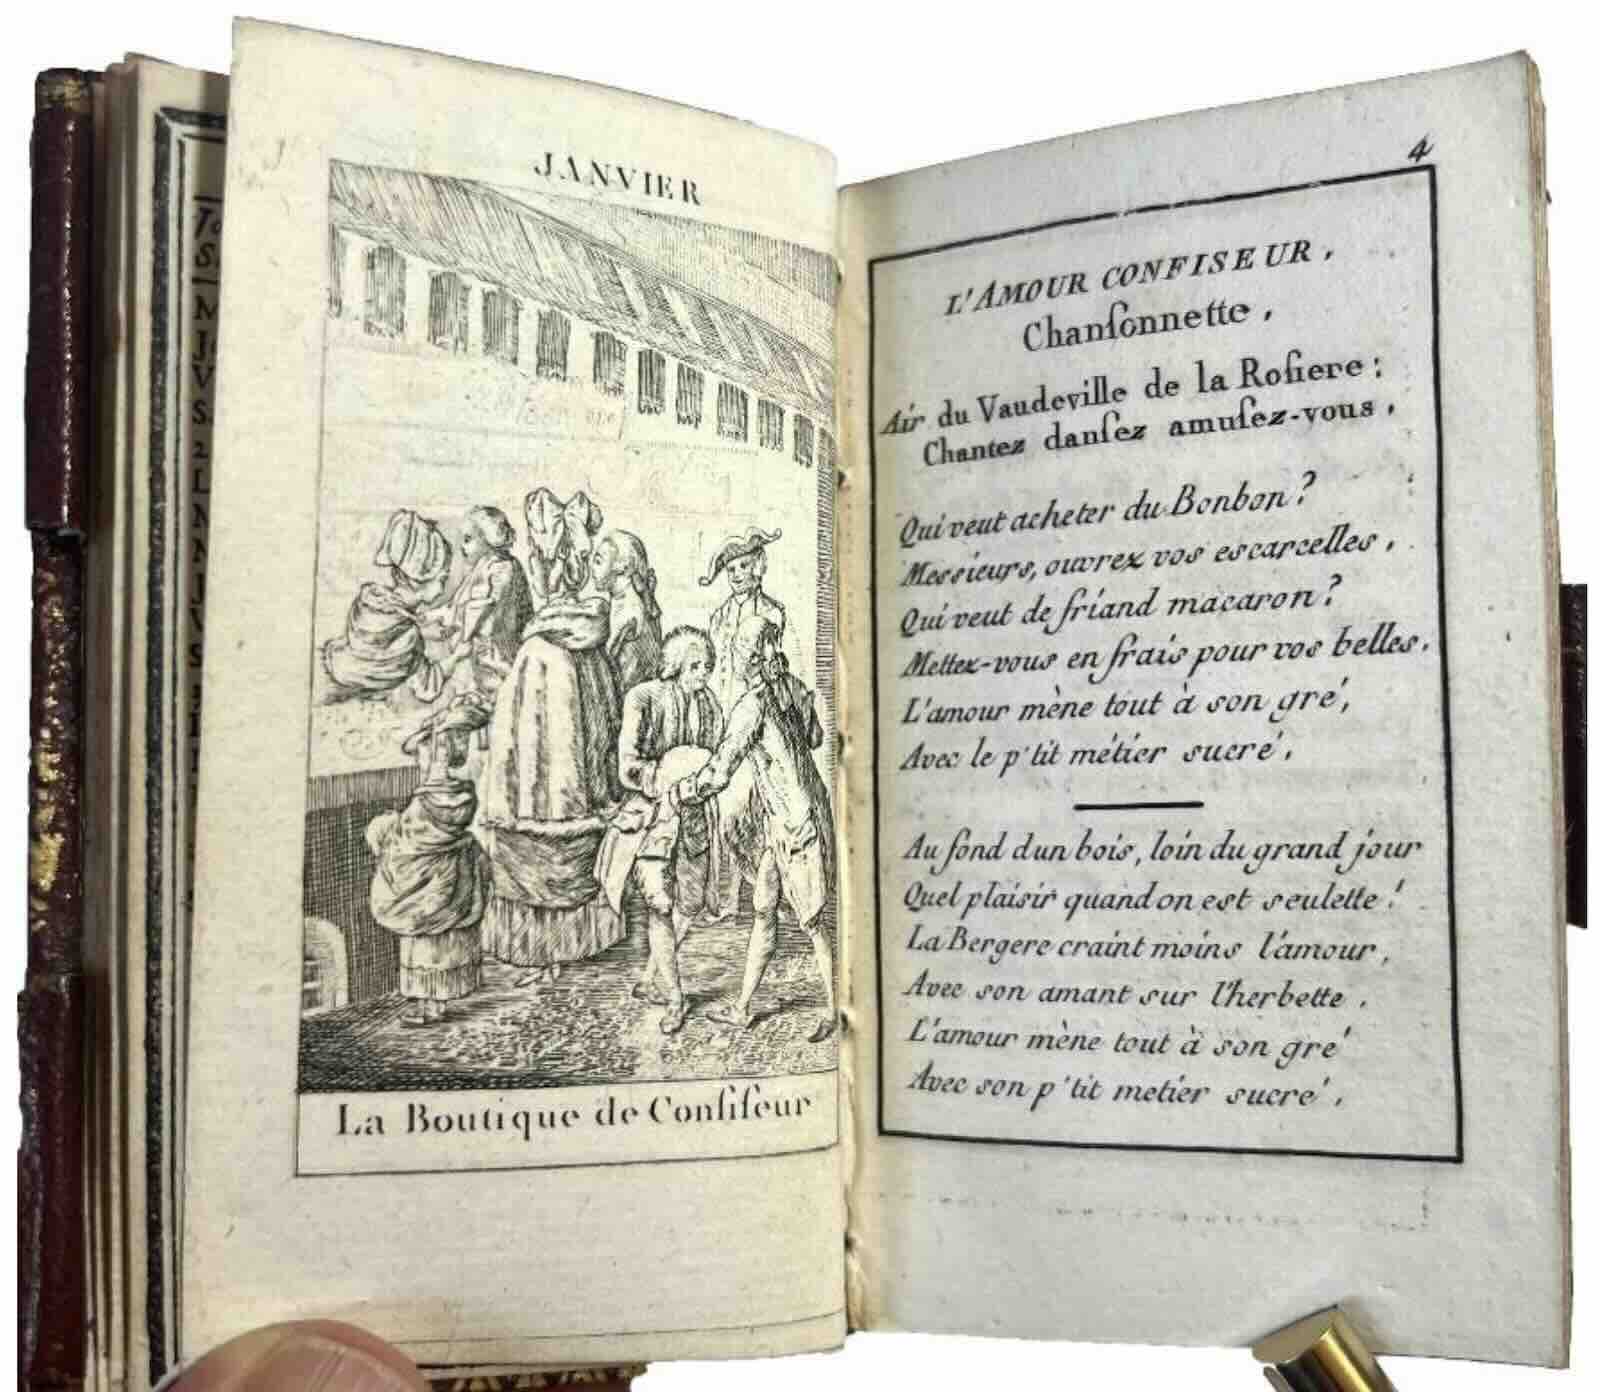 JANVIER
La Boutique de Confiſeur
4
L'AMOUR CONFISEUR,
Chanſonnette,
Air du Vaudeville de la Roſiere:
Chantez danſez amuſez-vous,
Qui veut acheter du Bonbon?
Messieurs, ouvrez vos escarcelles,
Qui veut de friand macaron?
Mettez-vous en frais pour vos belles.
L'amour mène tout à son gré,
Avec le p'tit métier sucré.
Au fond dun bois, loin du grand jour
Quel plaisir quand on est seulette!
La Bergere craint moins l'amour,
Avec son amant sur l'herbette.
L'amour mène tout à son gré
Avec son p'tit metier sucré.